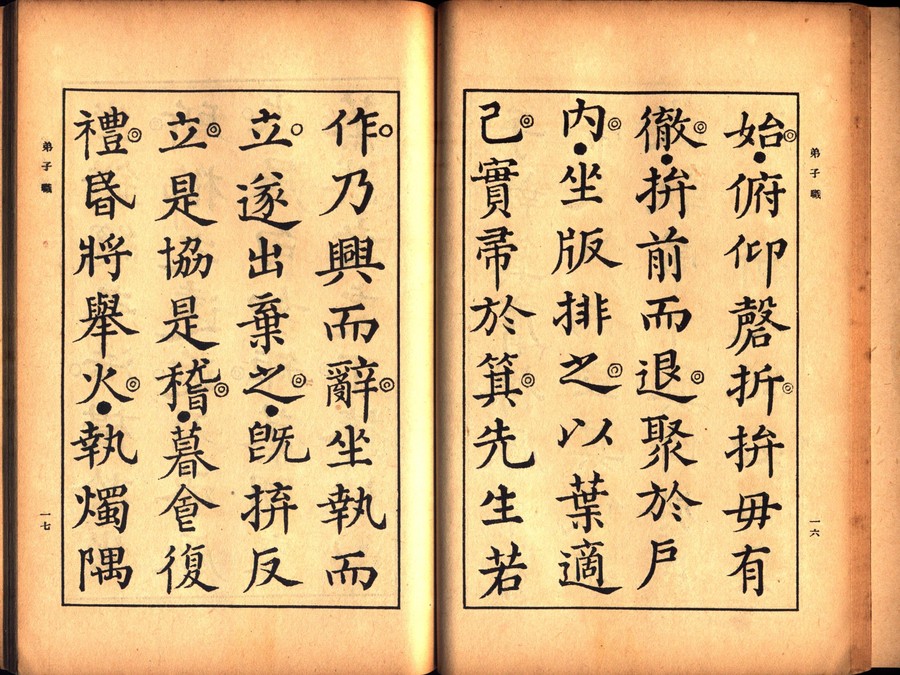 弟子職
始俯仰磬折拚毋有
徹拚前而退聚於戶
内坐版排之以葉適
己實帚於箕先生若
一六
作乃興而辭坐執而
立遂出棄之既拚反
立是協是稽暮食復
禮昏將舉火執燭隅
弟子職
一七